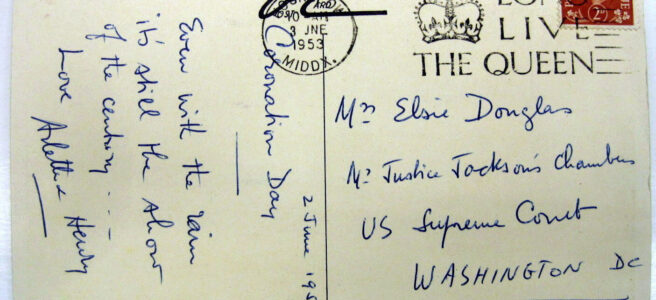 LONG
LIVE
THE QUEEN
3 JNE
1953
MIDDX.
2D
2 June 195
Coronation Day
Even with the rain
it's still the show
of the century ...
Love Arlette & Henry
Mrs Elsie Douglas
Mr Justice Jackson's Chambers
US Supreme Court
WASHINGTON DC